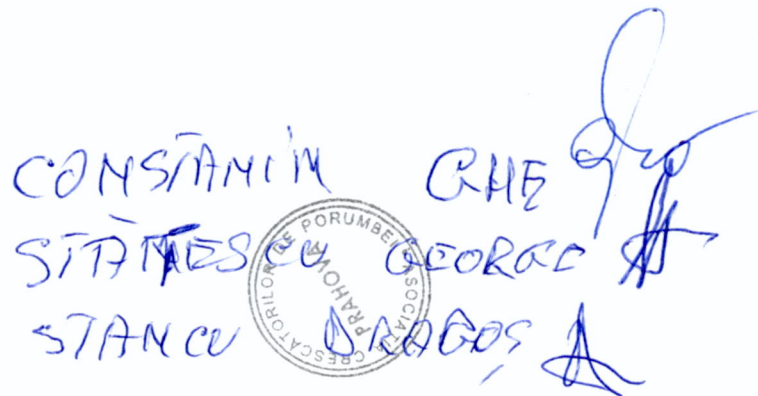 CONSTANTIN GHE
STĂNESCU GEORGE
STANCU DRAGOȘ
ASOCIATIA CRESCATORILOR DE PORUMBEI
PRAHOVA